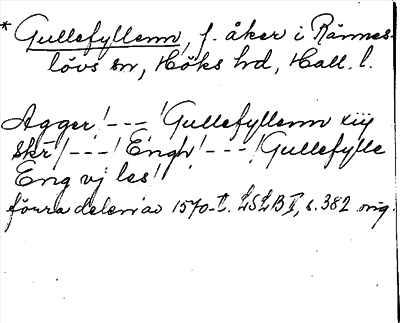 * Gullefyllenn, f. åker i Rännes-
lövs sn, Höks hd, Hall. l.
Agger! --- ! Gullefyllenn xiij
skr! --- ! Engh! --- ! Gullefylle
Eng vj les!
förra delen av 1570-t. LSLB II, s. 382 orig.